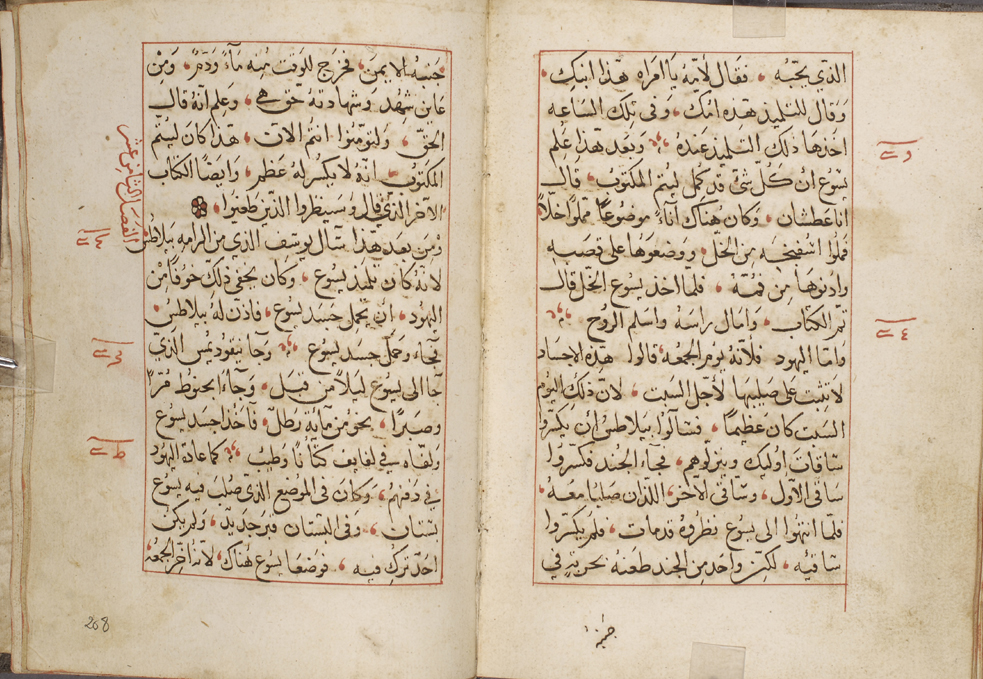 الذي يحبه فقال لامه يا امراه هذا ابنك
وقال للتلميذ هذه امك وفي تلك الساعه
اخذها ذلك التلميذ عنده وبعد هذا علم
يسوع ان كل شي قد كمل ليتم المكتوب قال
انا عطشان وكان هناك اناء موضوعا مملوا خلا
فملوا اسفنجه من الخل ووضعوها على قصبه
وادنوها من فمه فلما اخذ يسوع الخل قال
تم الكتاب وامال راسه واسلم الروح
واما اليهود فلانه يوم الجمعه قالوا هذه الاجساد
لا تثبت على صليبها لاجل السبت لان ذلك اليوم
السبت كان عظيما فسالوا بيلاطس ان يكسروا
ساقات اوليك وينزلوهم فجاء الجند فكسروا
ساقي الاول وساقي الاخر اللذان صلبا معه
فلما انتهوا الى يسوع نظروه قد مات فلم يكسروا
ساقيه لكن واحد من الجند طعنه بحربة في
جنبه
جنبه الايمن فخرج للوقت منه ماء ودم ومن
عاين شهد وشهادته حق هي وعلم انه قال
الحق ولتومنوا انتم الان هذا كان ليتم
المكتوب انه لا يكسر له عظم وايضا الكتاب
الاخر الذي قال سينظروا الذين طعنوا
الفصل الثامن عشر
ومن بعد هذا سال يوسف الذي من الرامه بيلاطس
لانه كان تلميذ يسوع وكان يخفي ذلك خوفا من
اليهود ان يحمل جسد يسوع فاذن له بيلاطس
فجاء وحمل جسد يسوع وجا نيقوديمس الذي
جا الى يسوع ليلا من قبل وجاء بحنوط مر
وصبرا نحو من مايه رطل فاخذا جسد يسوع
ولفاه في لفايف كتانا وطيب كما عادة اليهود
في دفنهم وكان في الموضع الذي صلب فيه يسوع
بستان وفي البستان قبر جديد ولم يكن
احد ترك فيه فوضعا يسوع هناك لانه اخر الجمعه
268